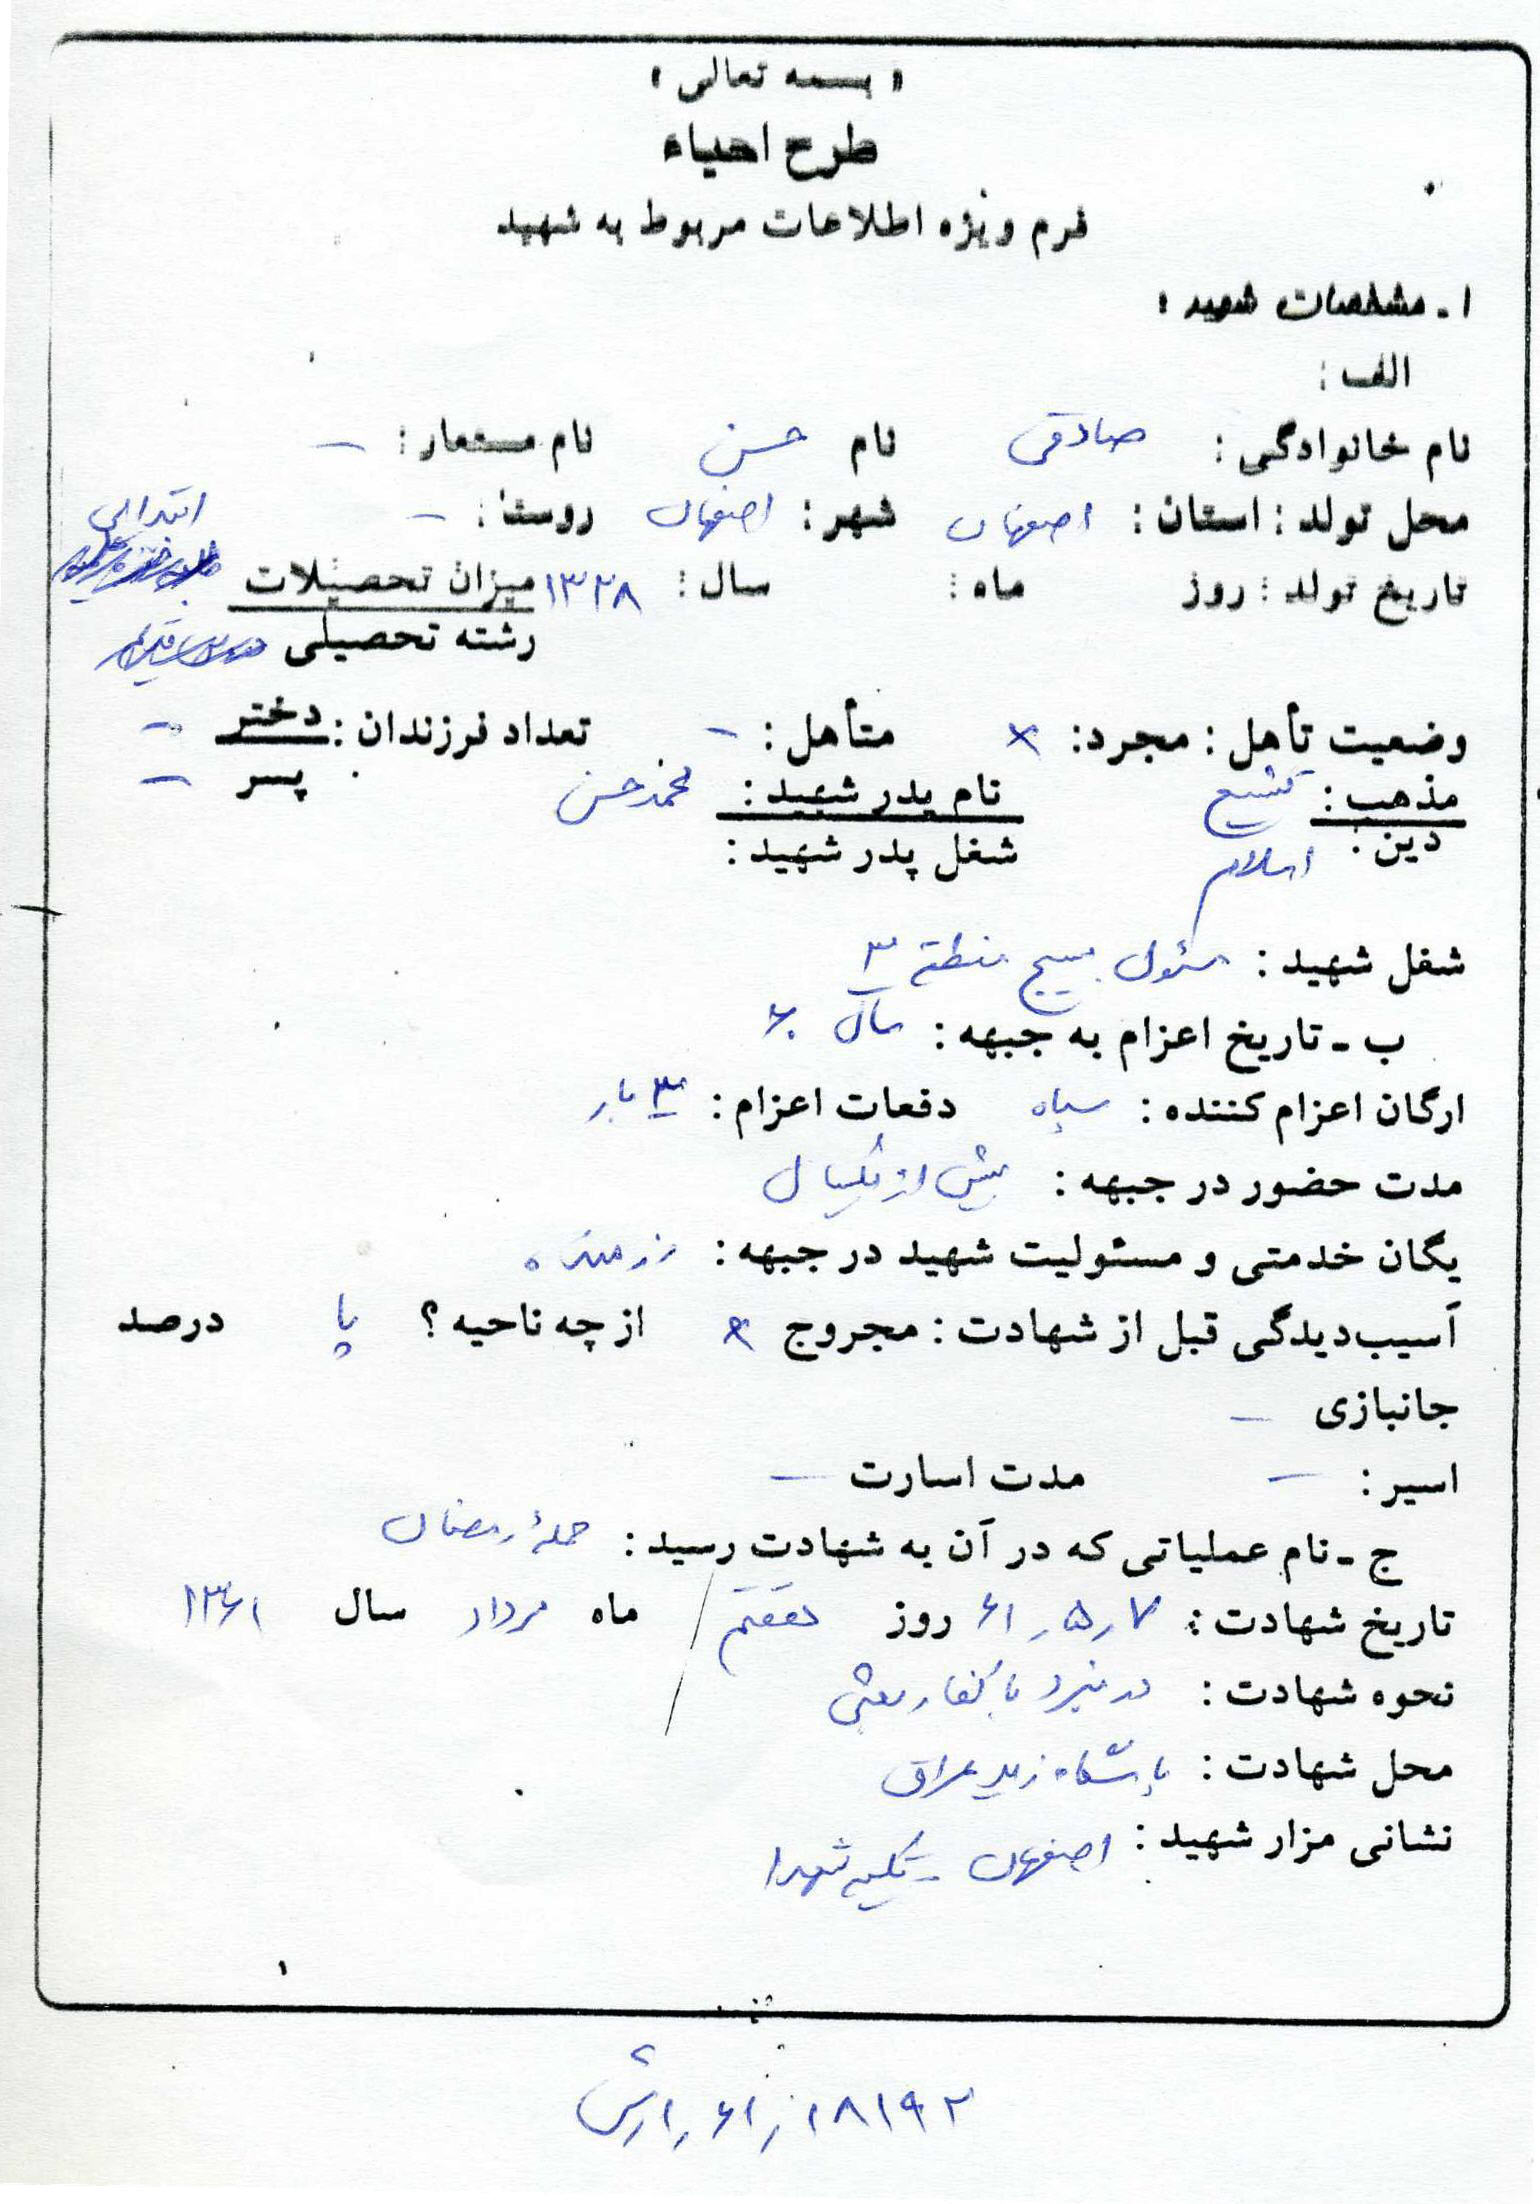 « بسمه تعالی »
طرح احیاء
فرم ویژه اطلاعات مربوط به شهید
۱ - مشخصات شهید :
الف :
نام خانوادگی : صادقی نام حسن نام مستعار : –
محل تولد : استان : اصفهان شهر : اصفهان روستا : – ابتدایی
تاریخ تولد : روز ماه : سال : ۱۳۲۸ میزان تحصیلات
رشته تحصیلی
وضعیت تأهل : مجرد : × متأهل : – تعداد فرزندان : دختر –
مذهب : تشیع نام پدر شهید : محمدحسن پسر –
دین : اسلام شغل پدر شهید :
شغل شهید : مسئول بسیج منطقه ۳
ب - تاریخ اعزام به جبهه : سال ۶۰
ارگان اعزام کننده : سپاه دفعات اعزام : ۳ بار
مدت حضور در جبهه : بیش از یکسال
یگان خدمتی و مسئولیت شهید در جبهه : رزمنده
آسیب‌دیدگی قبل از شهادت : مجروح × از چه ناحیه ؟ پا درصد
جانبازی –
اسیر : – مدت اسارت –
ج - نام عملیاتی که در آن به شهادت رسید : حملهٔ رمضان
تاریخ شهادت : ۶۱٫۵٫۷ روز هفتم / ماه مرداد سال ۱۳۶۱
نحوه شهادت : در نبرد با کفار بعثی
محل شهادت : پاسگاه زید عراق
نشانی مزار شهید : اصفهان - تکیه شهدا
۱